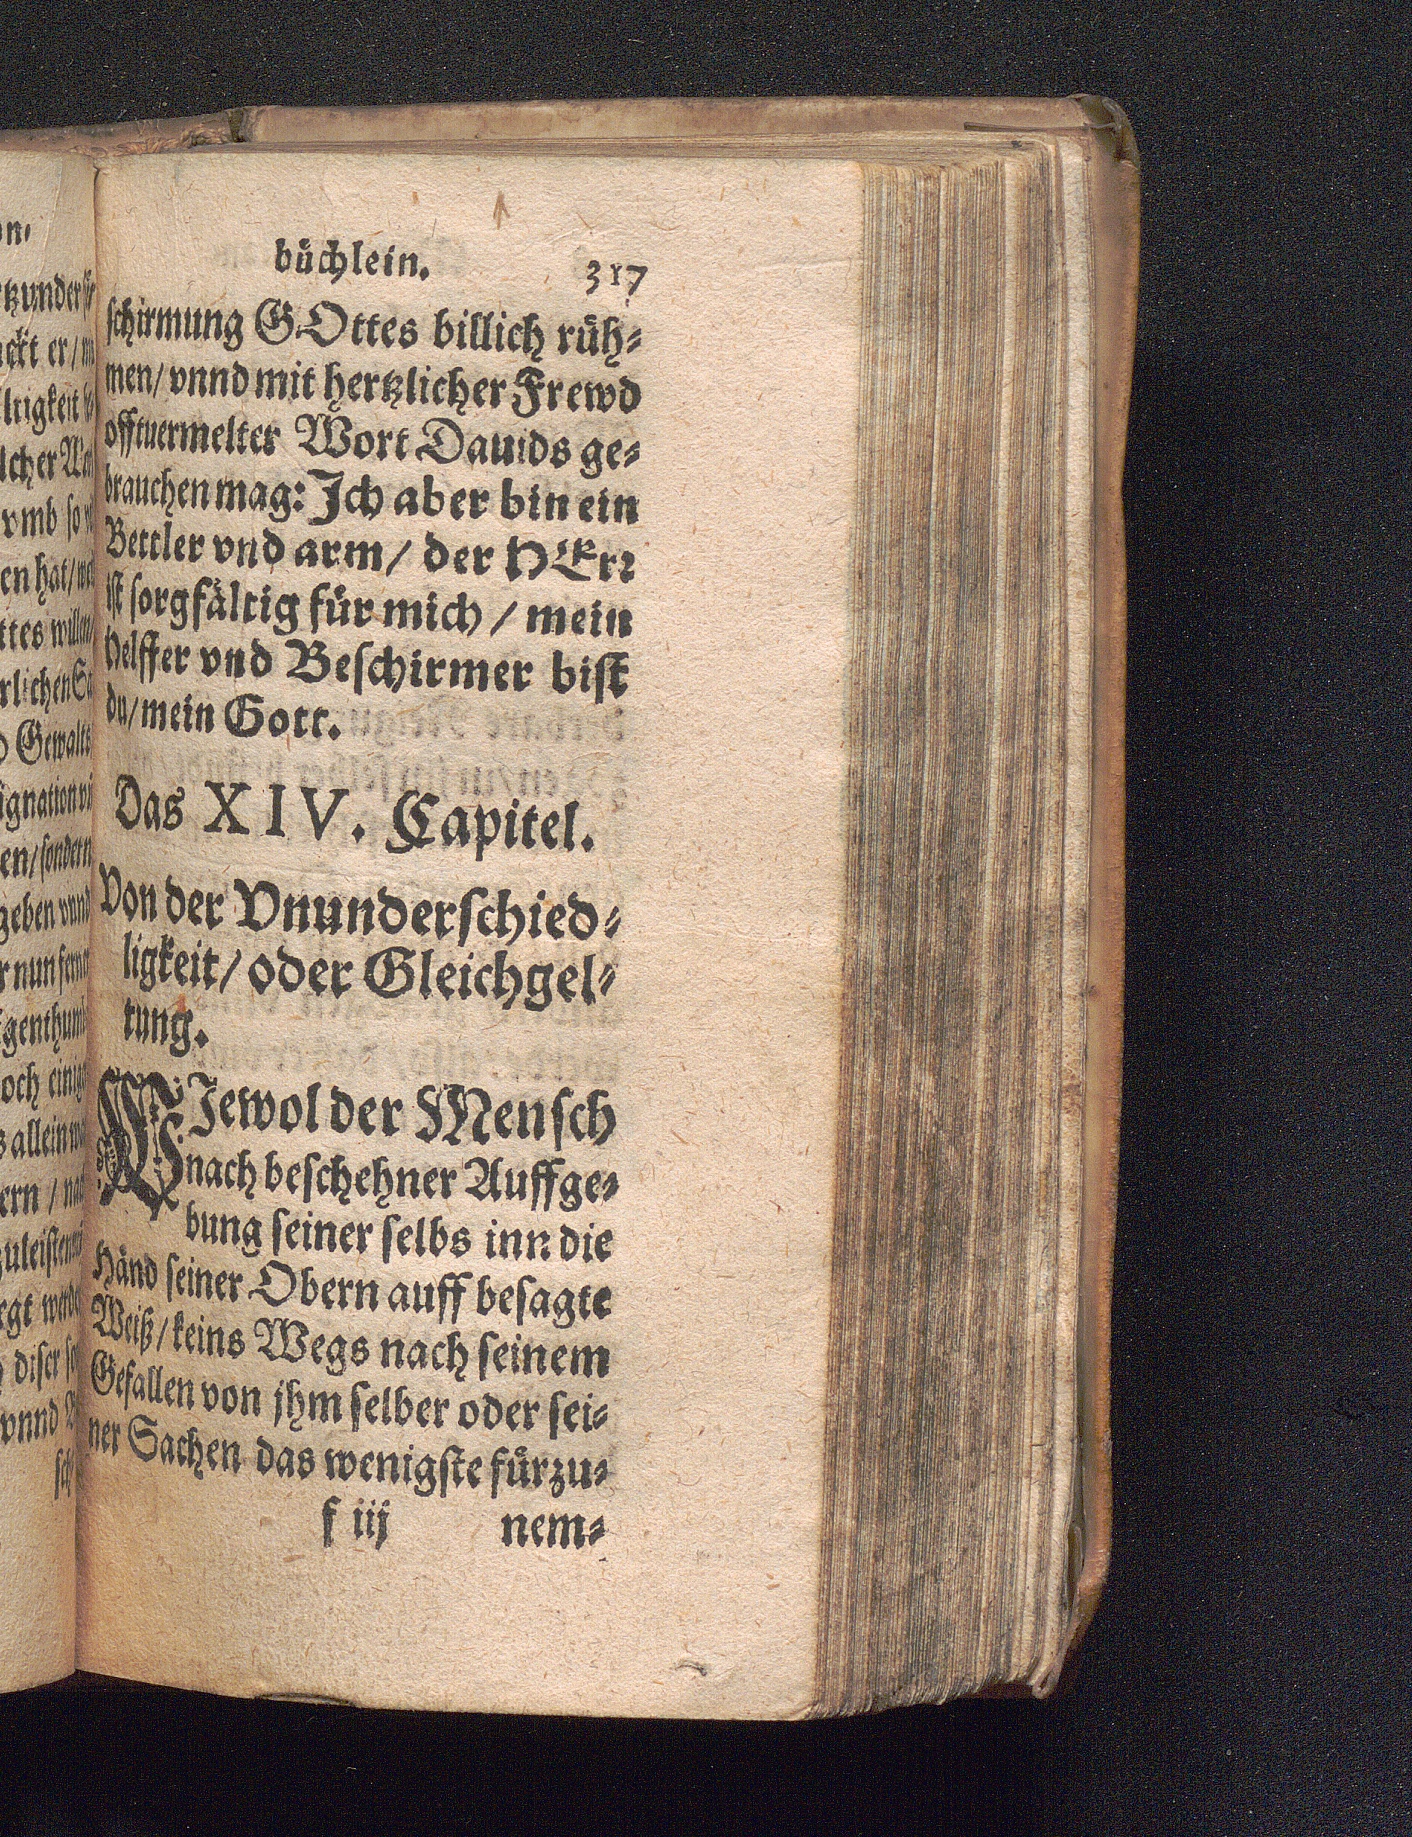 büchlein. 317
schirmung GOttes billich rüh-
men/ vnnd mit hertzlicher Frewd
offtuermelter Wort Dauids ge-
brauchen mag: Jch aber bin ein
Bettler vnd arm/ der HErr
ist sorgfältig für mich / mein
Helffer vnd Beschirmer bist
du/ mein Gott.
Das XIV. Capitel.
Von der Vnunderschied-
ligkeit/ oder Gleichgel-
tung.
WJewol der Mensch
nach beschehner Auffge-
bung seiner selbs inn die
Händ seiner Obern auff besagte
Weiß/ keins Wegs nach seinem
Gefallen von jhm selber oder sei-
ner Sachen das wenigste fürzu-
f iij nem-